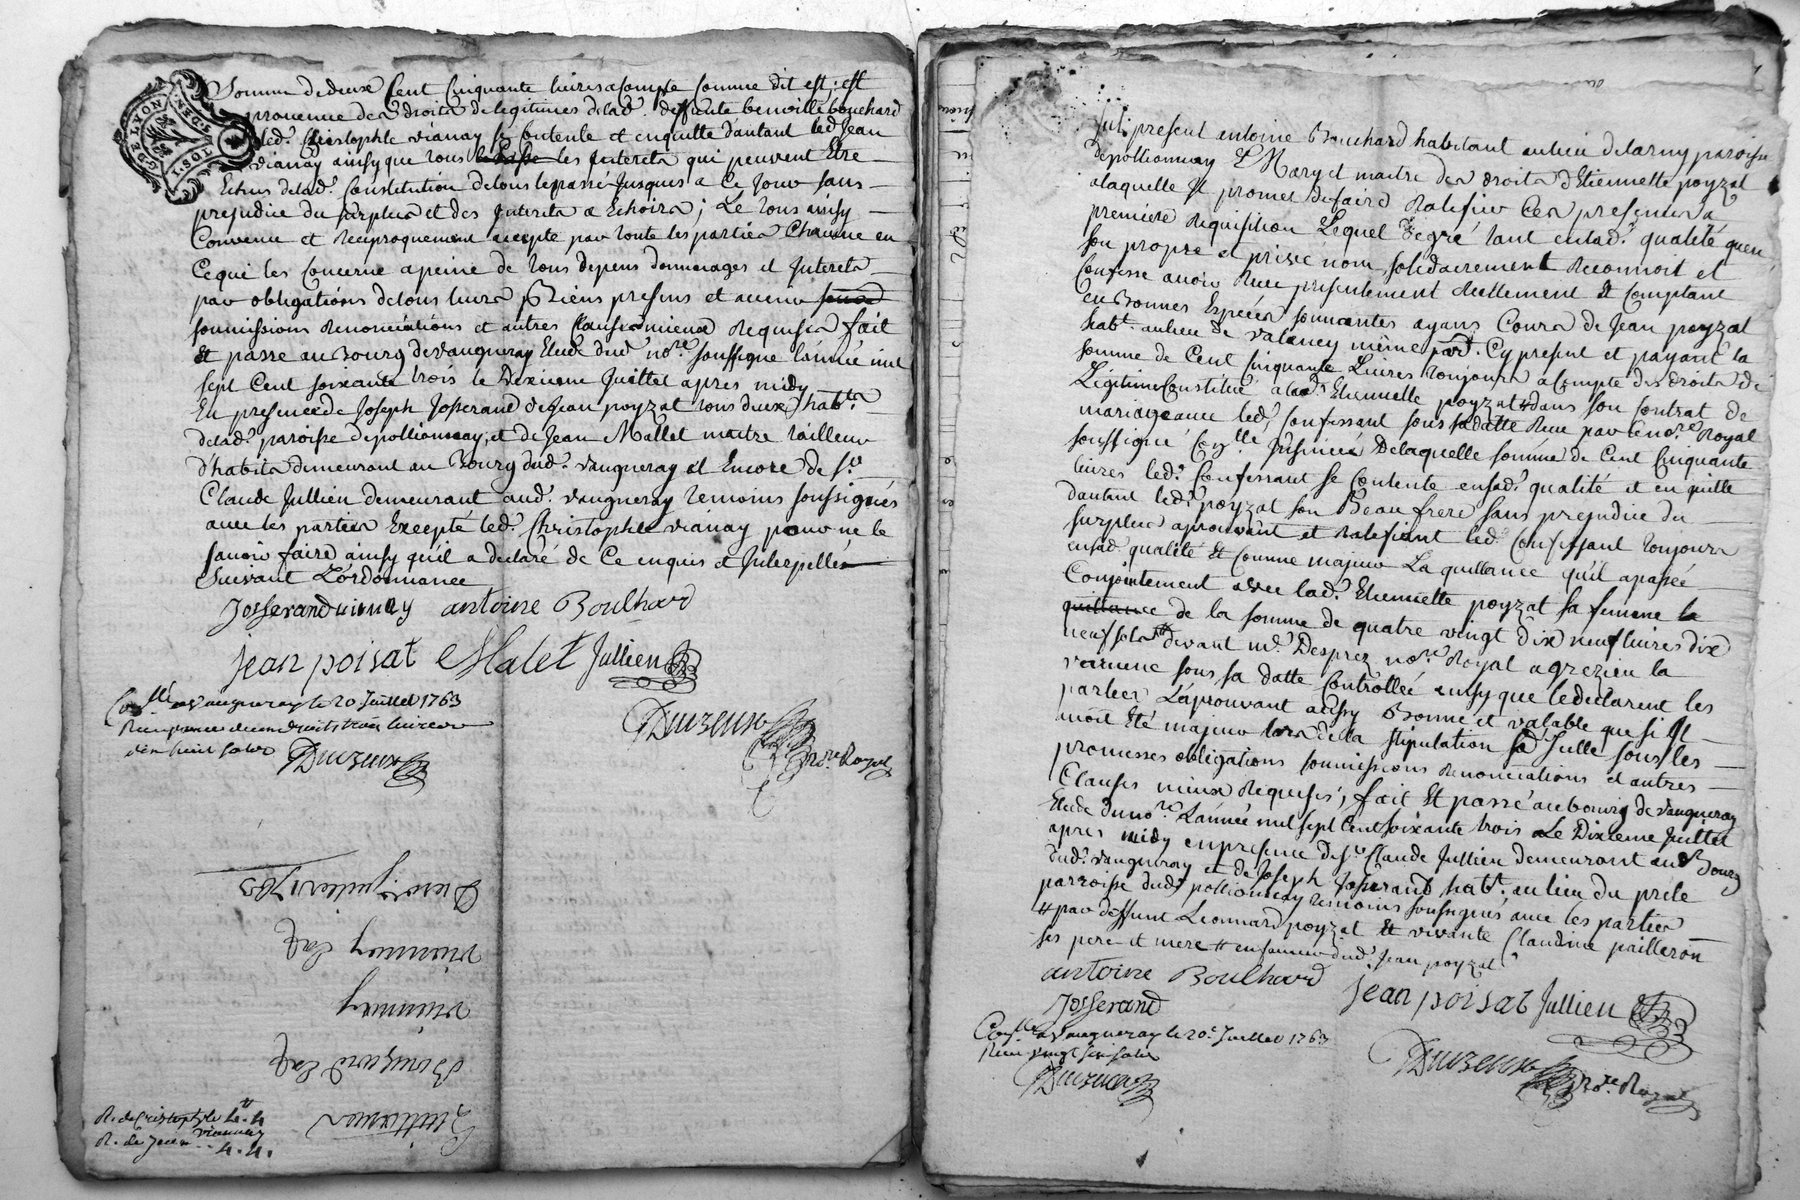 Somme de deux Cent Cinquante livres acompte Comme dit est; est
provenue des droits de legitimes delad. deffunte benoitte bouchard
led. Christophle vianay se Contente et enquitte dautant led Jean
vianay ainsy que tous les Interets qui peuvent Etre
Echus delad. Constitution detous lepassé Jusques a Ce Jour sans
prejudice du surplus et des Interets a Echoirs; Le tous ainsy
Convenu et reciproquement accepté par toute les parties Chacune en
Cequi les Concerne apeine de tous depens dommages et Interets
par obligations detous leurs Biens presens et avenir
soumissions Renonciations et autres Clauses mieux Requises fait
Et passé au Bourg de vaugneray Etude dud. no.re soussigné l'année mil
sept Cent soixante trois le Dixieme Juillet apres midy
En presence de Joseph Josserand de Jean poyzat tous deux hab.ts
delad. paroisse de pollionnay, et de Jean Mallet maitre tailleur
d'habits demeurant au Bourg dud. vaugneray et Encore de s.r
Claude Jullien demeurant aud. vaugneray temoins soussignés
avec les parties Excepté led. Christophle vianay pour ne le
savoir faire ainsy qu'il a declaré de Ce enquis et Interpellés
Suivant L'ordonnance
Josserand vianay antoine Boulhard
jean poisat Malet Jullien
Con.llé a vaugneray le 20 Juillet 1763
Duzeux
no.re Royal
Duzeux
Du 10 Juillet 1763
vianay
vianay
Quittance
R. de Cristophle 4.tt 4
R. de Jean vianay
4. 4.
GE. LYON
Fut present entoine Bouchard habitant aulieu delarny paroisse
depollionnay Et Mary et maitre des droits d'Etiennette poyzat
alaquelle Il promet defaire Ratifier Ces presentes a
premiere Requisition Lequel degré tant enlad. qualité quen
son propre et privé nom, solidairement Reconnoit et
Confesse avoir Receu presentement Reellement Et Comptant
En Bonnes Especes sonnantes ayans Cours de Jean poyzat
hab.t aulieu de valency même par. Cy present et payant la
somme de Cent Cinquante Livres toujours acompte des droits de
Légitime Constitué alad. Etiennette poyzat dans son Contrat de
mariage avec led. Confessant sous sa datte Receu par le no.re Royal
soussigné Con.llé Insinué Delaquelle somme de Cent Cinquante
livres led. Confessant se Contente ensad. qualité et en quitte
dautant led. poyzat son Beaufrere sans prejudice du
surplus aprouvant et Ratifiant led. Confessant toujours
ensad. qualité Et Comme majeur La quittance qu'il apassée
Conjointement avec lad. Etiennette poyzat sa femme
quittance de la somme de quatre vingt dix neuf livres dix
neuf sols devant m.e Desprez no.re Royal a grezieu la
varenne sous sa datte Controllée ainsy que ledeclarent les
parties L'aprouvant aussy Bonne et valable que si Il
avoit Eté majeur lors de la stipulation d'Icelle sous les
promesses obligations soumissions Renonciations et autres
Clauses mieux Requises; fait Et passé aubourg de vaugneray
Etude dud no.re L'année mil sept Cent soixante trois Le Dixieme Juillet
apres midy enpresence de s.r Claude Jullien demeurant au Bourg
dud. vaugneray et de Joseph Josserand hab.t aulieu du prele
parroisse dud. pollionnay temoins soussignés avec les parties
# par deffunt Leonnard poyzat Et vivante Claudine pailleron
ses pere et mere # en faveur dud. Jean poyzat
antoine Boulhard jean poisat Jullien
Josserand
Con.llé a vaugneray le 20.e Juillet 1763
Receu vingt six sols
Duzeux
Duzeux
no.re Royal